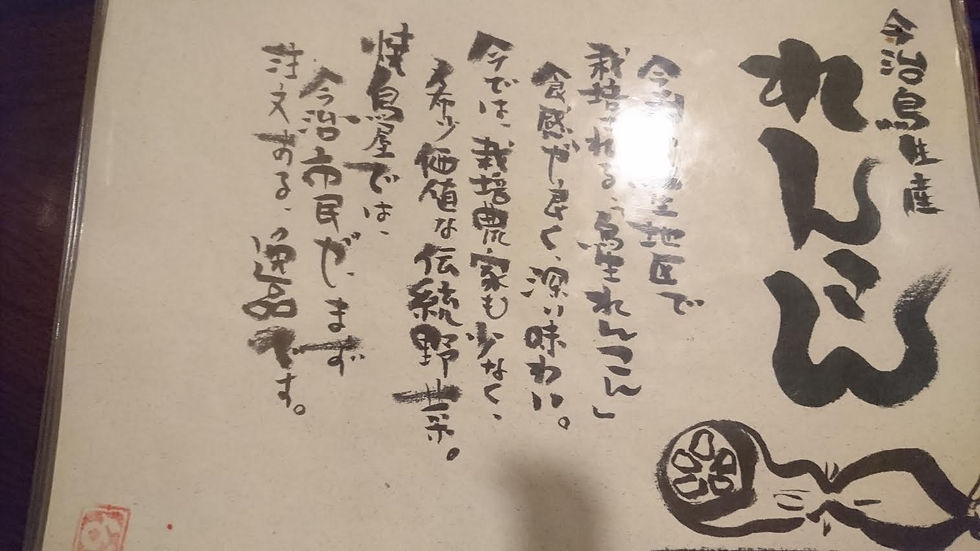 今治鳥生産
れんこん
今治 生地区で
栽培される、「鳥生れんこん」
食感が良く、深い味わい。
今では、栽培農家も少なく、
希少価値な伝統野菜。
焼鳥屋では、
今治市民が、まず
注文する、逸品です。